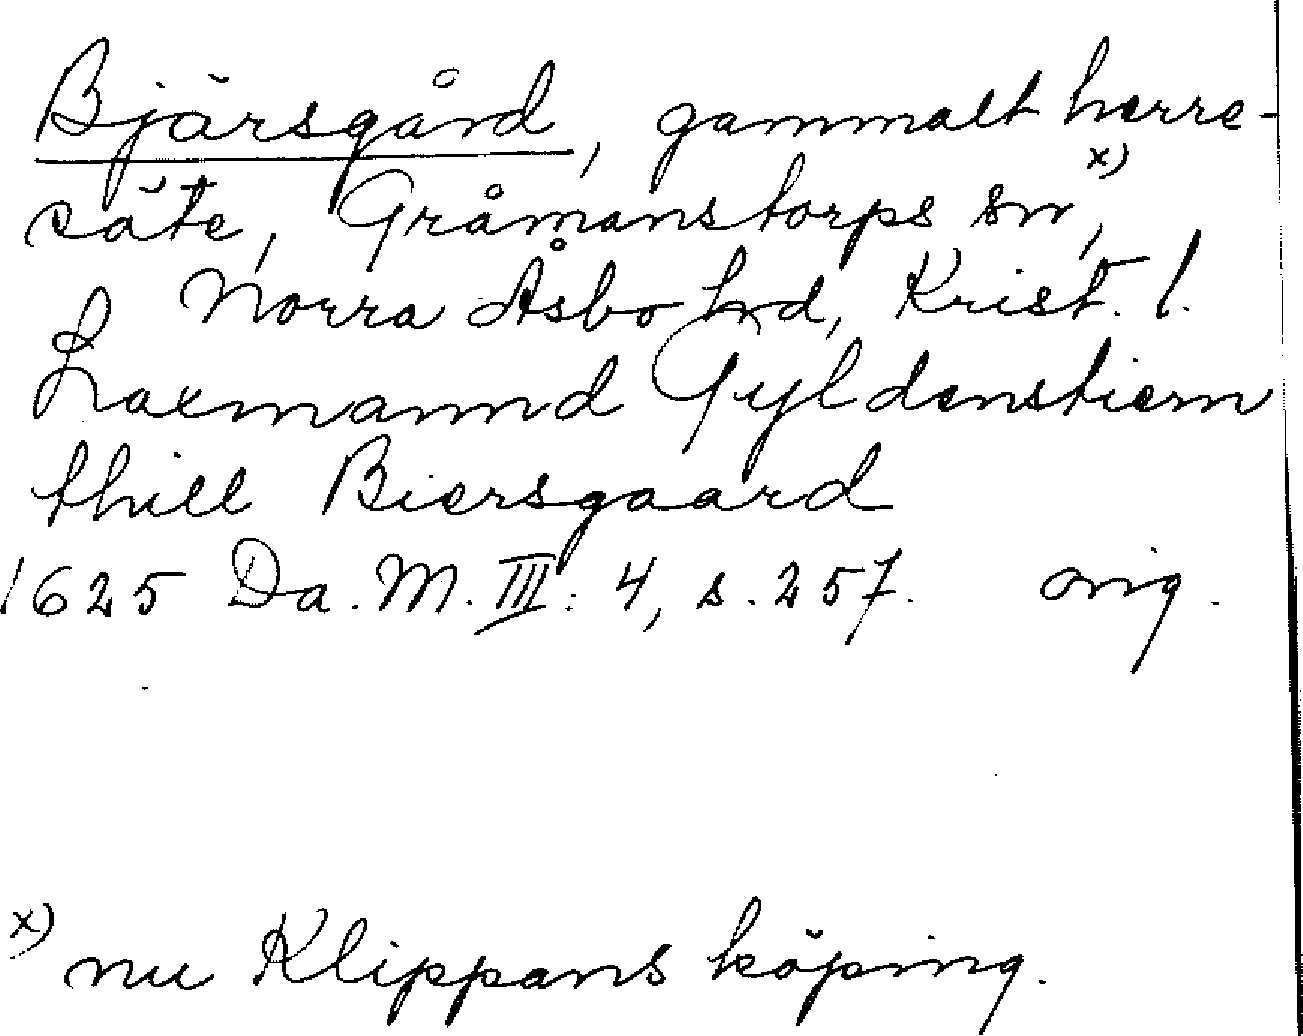 Bjärsgård, gammalt herre-
säte, Gråmanstorps sn, x)
Norra Åsbo hd, Krist. l.
Laxmannd Gyldenstiern
thill Biersgaard
1625 Da. M. III: 4, s. 257. orig.
x) nu Klippans köping.